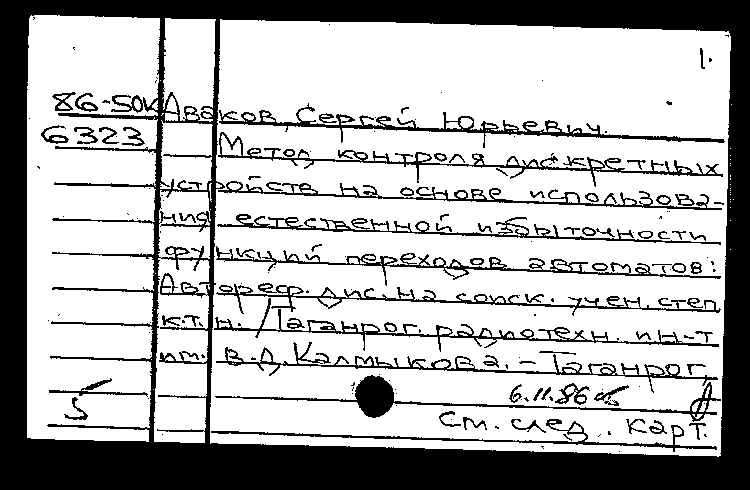 1.
86-50к Аваков, Сергей Юрьевич.
6323 Метод контроля дискретных
устройств на основе использова-
ния естественной избыточности
функций переходов автоматов:
Автореф. дис. на соиск. учен. степ
к.т.н. / Таганрог. радиотехн. ин-т
им. В.Д. Калмыкова. - Таганрог,
6.11.86
5 См. след. карт.